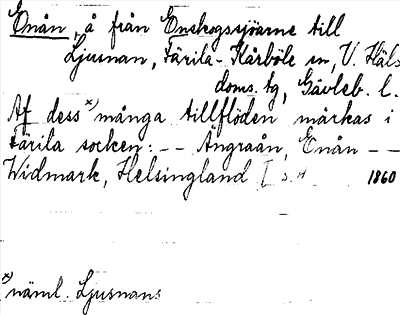 Enån, å från Enskogssjöarne till
Ljusnan, Färila-Kårböle sn, V. Häls
doms. tg, Gävleb. l.
Af dess x) många tillflöden märkas i
Färila socken: -- Ängraån, Enån --
Widmark, Helsingland I s. 1860
x) näml. Ljusnans